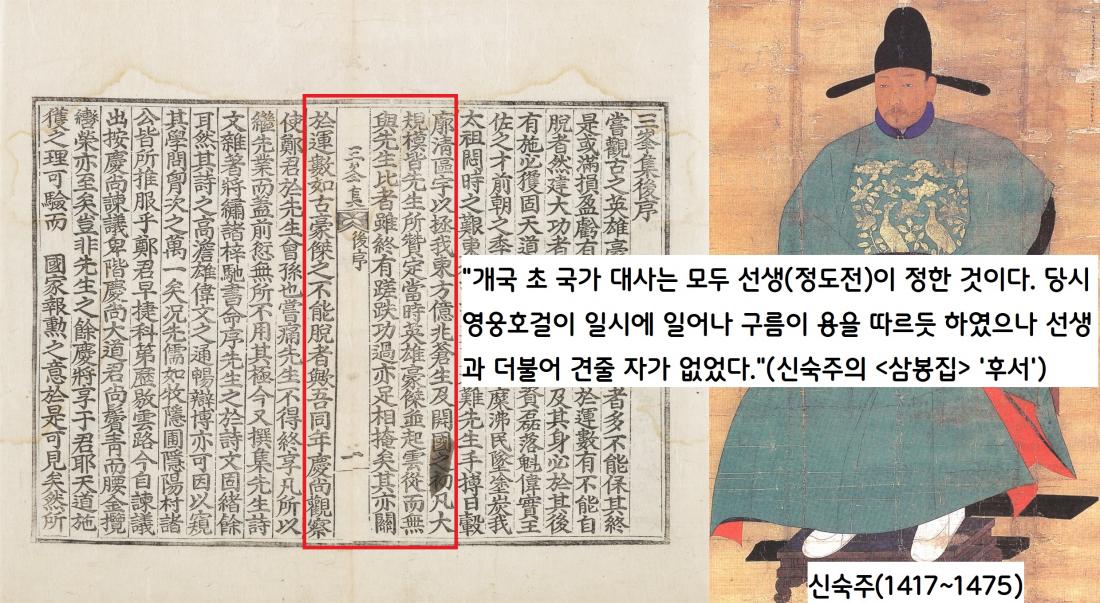 三峯集後序
嘗觀古之英雄豪 者多不能保其終
是或滿損盈虧有 於運數有不能自
脫者然建大功者 及其身必於其後
有施必獲固天道 資磊落魁偉實王
佐之才前朝之季 糜沸民墜塗炭我
太祖悶時之艱東 難先生手搏日轂
廓清區宇以拯我東方億兆蒼生及開國之初凡大
規模皆先生所贊定當時英雄豪傑並起雲從而無
與先生比者雖終有蹉跌功過亦足相掩矣其亦關
三峯集 後序 一
於運數如古豪傑之不能脫者歟吾同年慶尚觀察
使鄭君於先生曾孫也嘗痛先生不得終享凡所以
繼先業而蓋前愆無所不用其極今又撰集先生詩
文雜著將繡諸梓馳書命序先生之於詩文固緒餘
耳然其詩之高澹雄偉文之通暢辯博亦可因以窺
其學問胷次之萬一矣況先儒如牧隱圃隱陽村諸
公皆所推服乎鄭君早捷科第歷敭雲路今自諫議
出按慶尚諫議卑階慶尚大道君尚鬢青而腰金攬
轡榮亦至矣豈非先生之餘慶將享于君耶天道施
獲之理可驗而 國家報勲之意於是可見矣然所
"개국 초 국가 대사는 모두 선생(정도전)이 정한 것이다. 당시
영웅호걸이 일시에 일어나 구름이 용을 따르듯 하였으나 선생
과 더불어 견줄 자가 없었다."(신숙주의 <삼봉집> '후서')
신숙주(1417~1475)